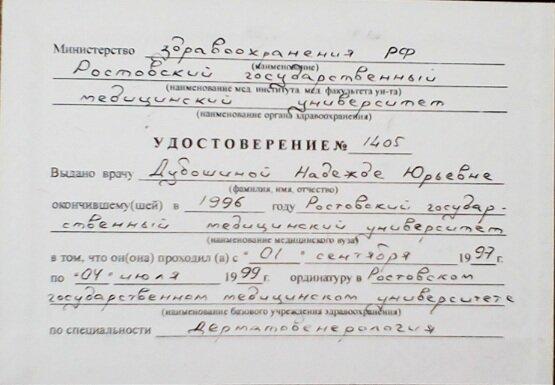 Министерство здравоохранения РФ
(наименование)
Ростовский государственный
(наименование мед. института мед. факультета ун-та)
медицинский университет
(наименование органа здравоохранения)
УДОСТОВЕРЕНИЕ № 1405
Выдано врачу Дубошиной Надежде Юрьевне
(фамилия, имя, отчество)
окончившему(шей) в 1996 году Ростовский государ-
ственный медицинский университет
(наименование медицинского вуза)
в том, что он(она) проходил (а) с "01" сентября 1997 г.
по "04" июля 1999 г. ординатуру в Ростовском
государственном медицинском университете
(наименование базового учреждения здравоохранения)
по специальности Дерматовенерология